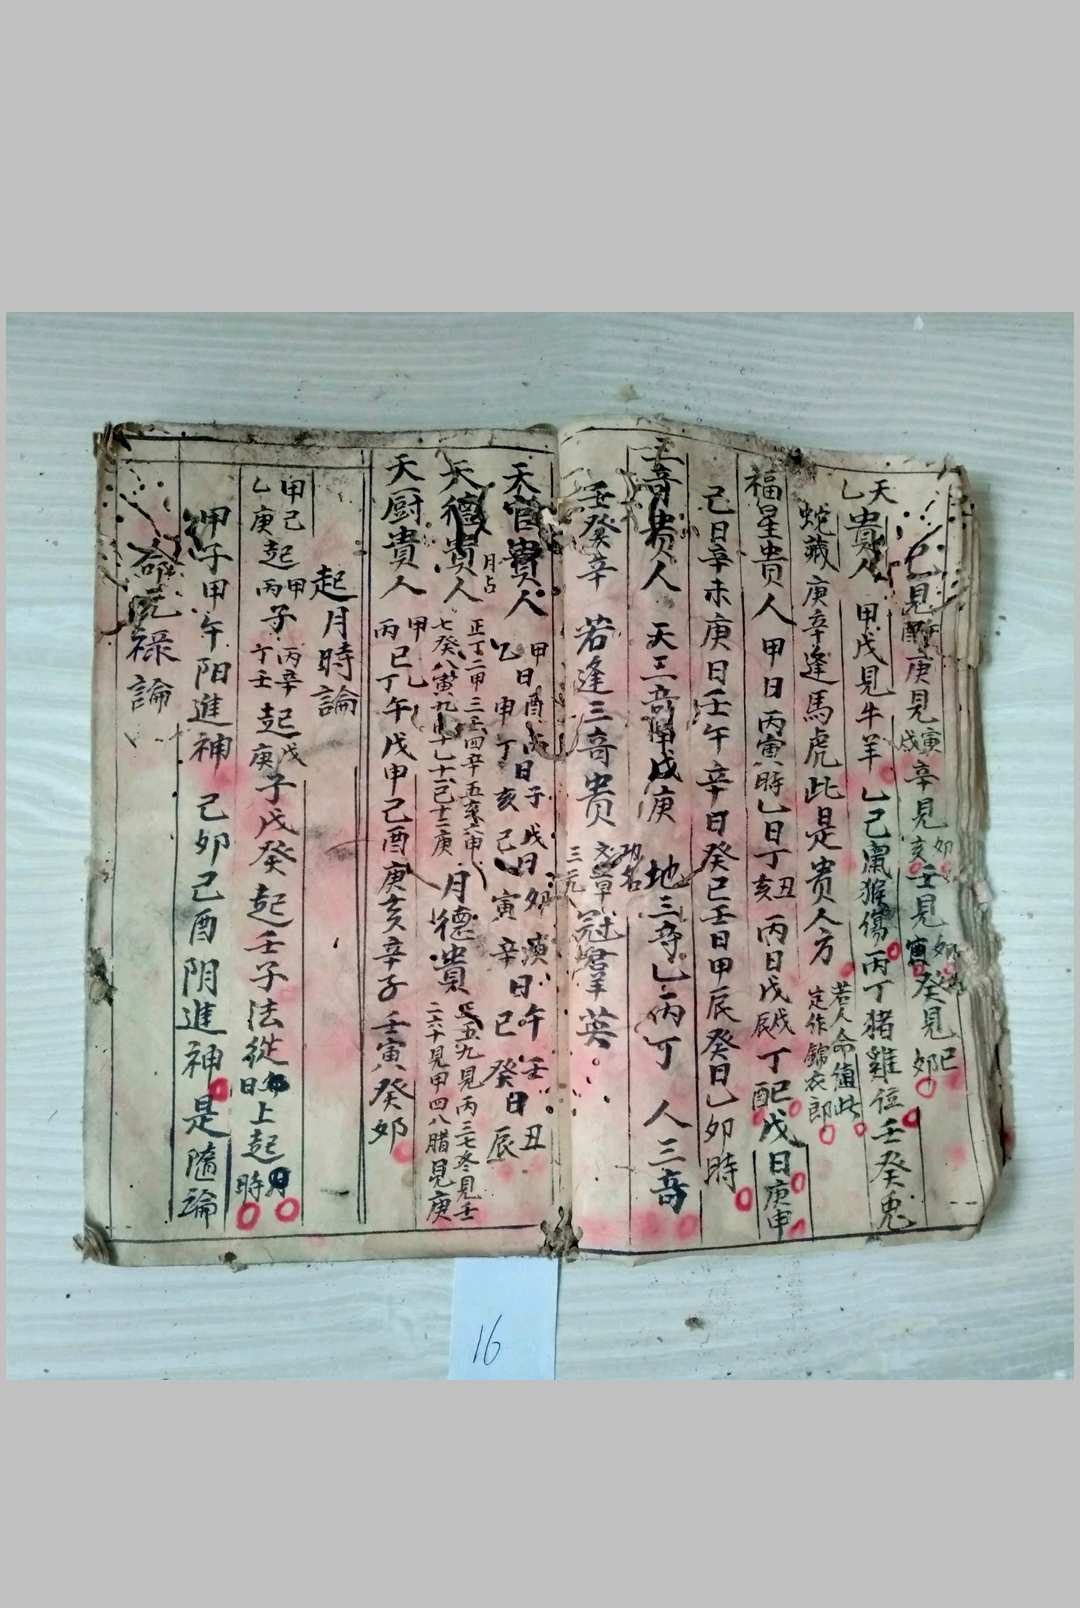 己見 庚見寅戌辛見卯亥壬見卯寅癸見巳卯
天乙貴人 甲戊見牛羊 乙己鼠猴傷 丙丁猪雞位 壬癸兎
蛇藏 庚辛逢馬虎 此是貴人方 若人命值此 定作錦衣郎
福星貴人 甲日丙寅時 乙日丁丑亥 丙日戊戌辰 丁酉巳 戊日庚申
己日辛未 庚日壬午 辛日癸巳 壬日甲辰 癸日乙卯時
三奇貴人 天三奇甲戊庚 地三奇乙丙丁 人三奇
壬癸辛 若逢三奇貴 三元文章冠羣英
天官貴人 甲日酉 乙申 丙日子 丁亥 戊日卯 己寅 庚午 辛日巳 壬丑 癸日辰
天德貴人 月占 正丁二甲三壬四辛五亥六甲七癸八寅九丙十乙十一巳十二庚 月德貴 正五九見丙三七冬見壬二六十見甲四八腊見庚
天厨貴人 甲巳丙巳丁午戊申己酉庚亥辛子壬寅癸卯
起月時論
甲己起甲子 乙庚起丙子 丙辛起戊子 丁壬起庚子 戊癸起壬子 法從日上起時
甲子甲午阳進神 己卯己酉阴進神 是隨論
命元祿論
16